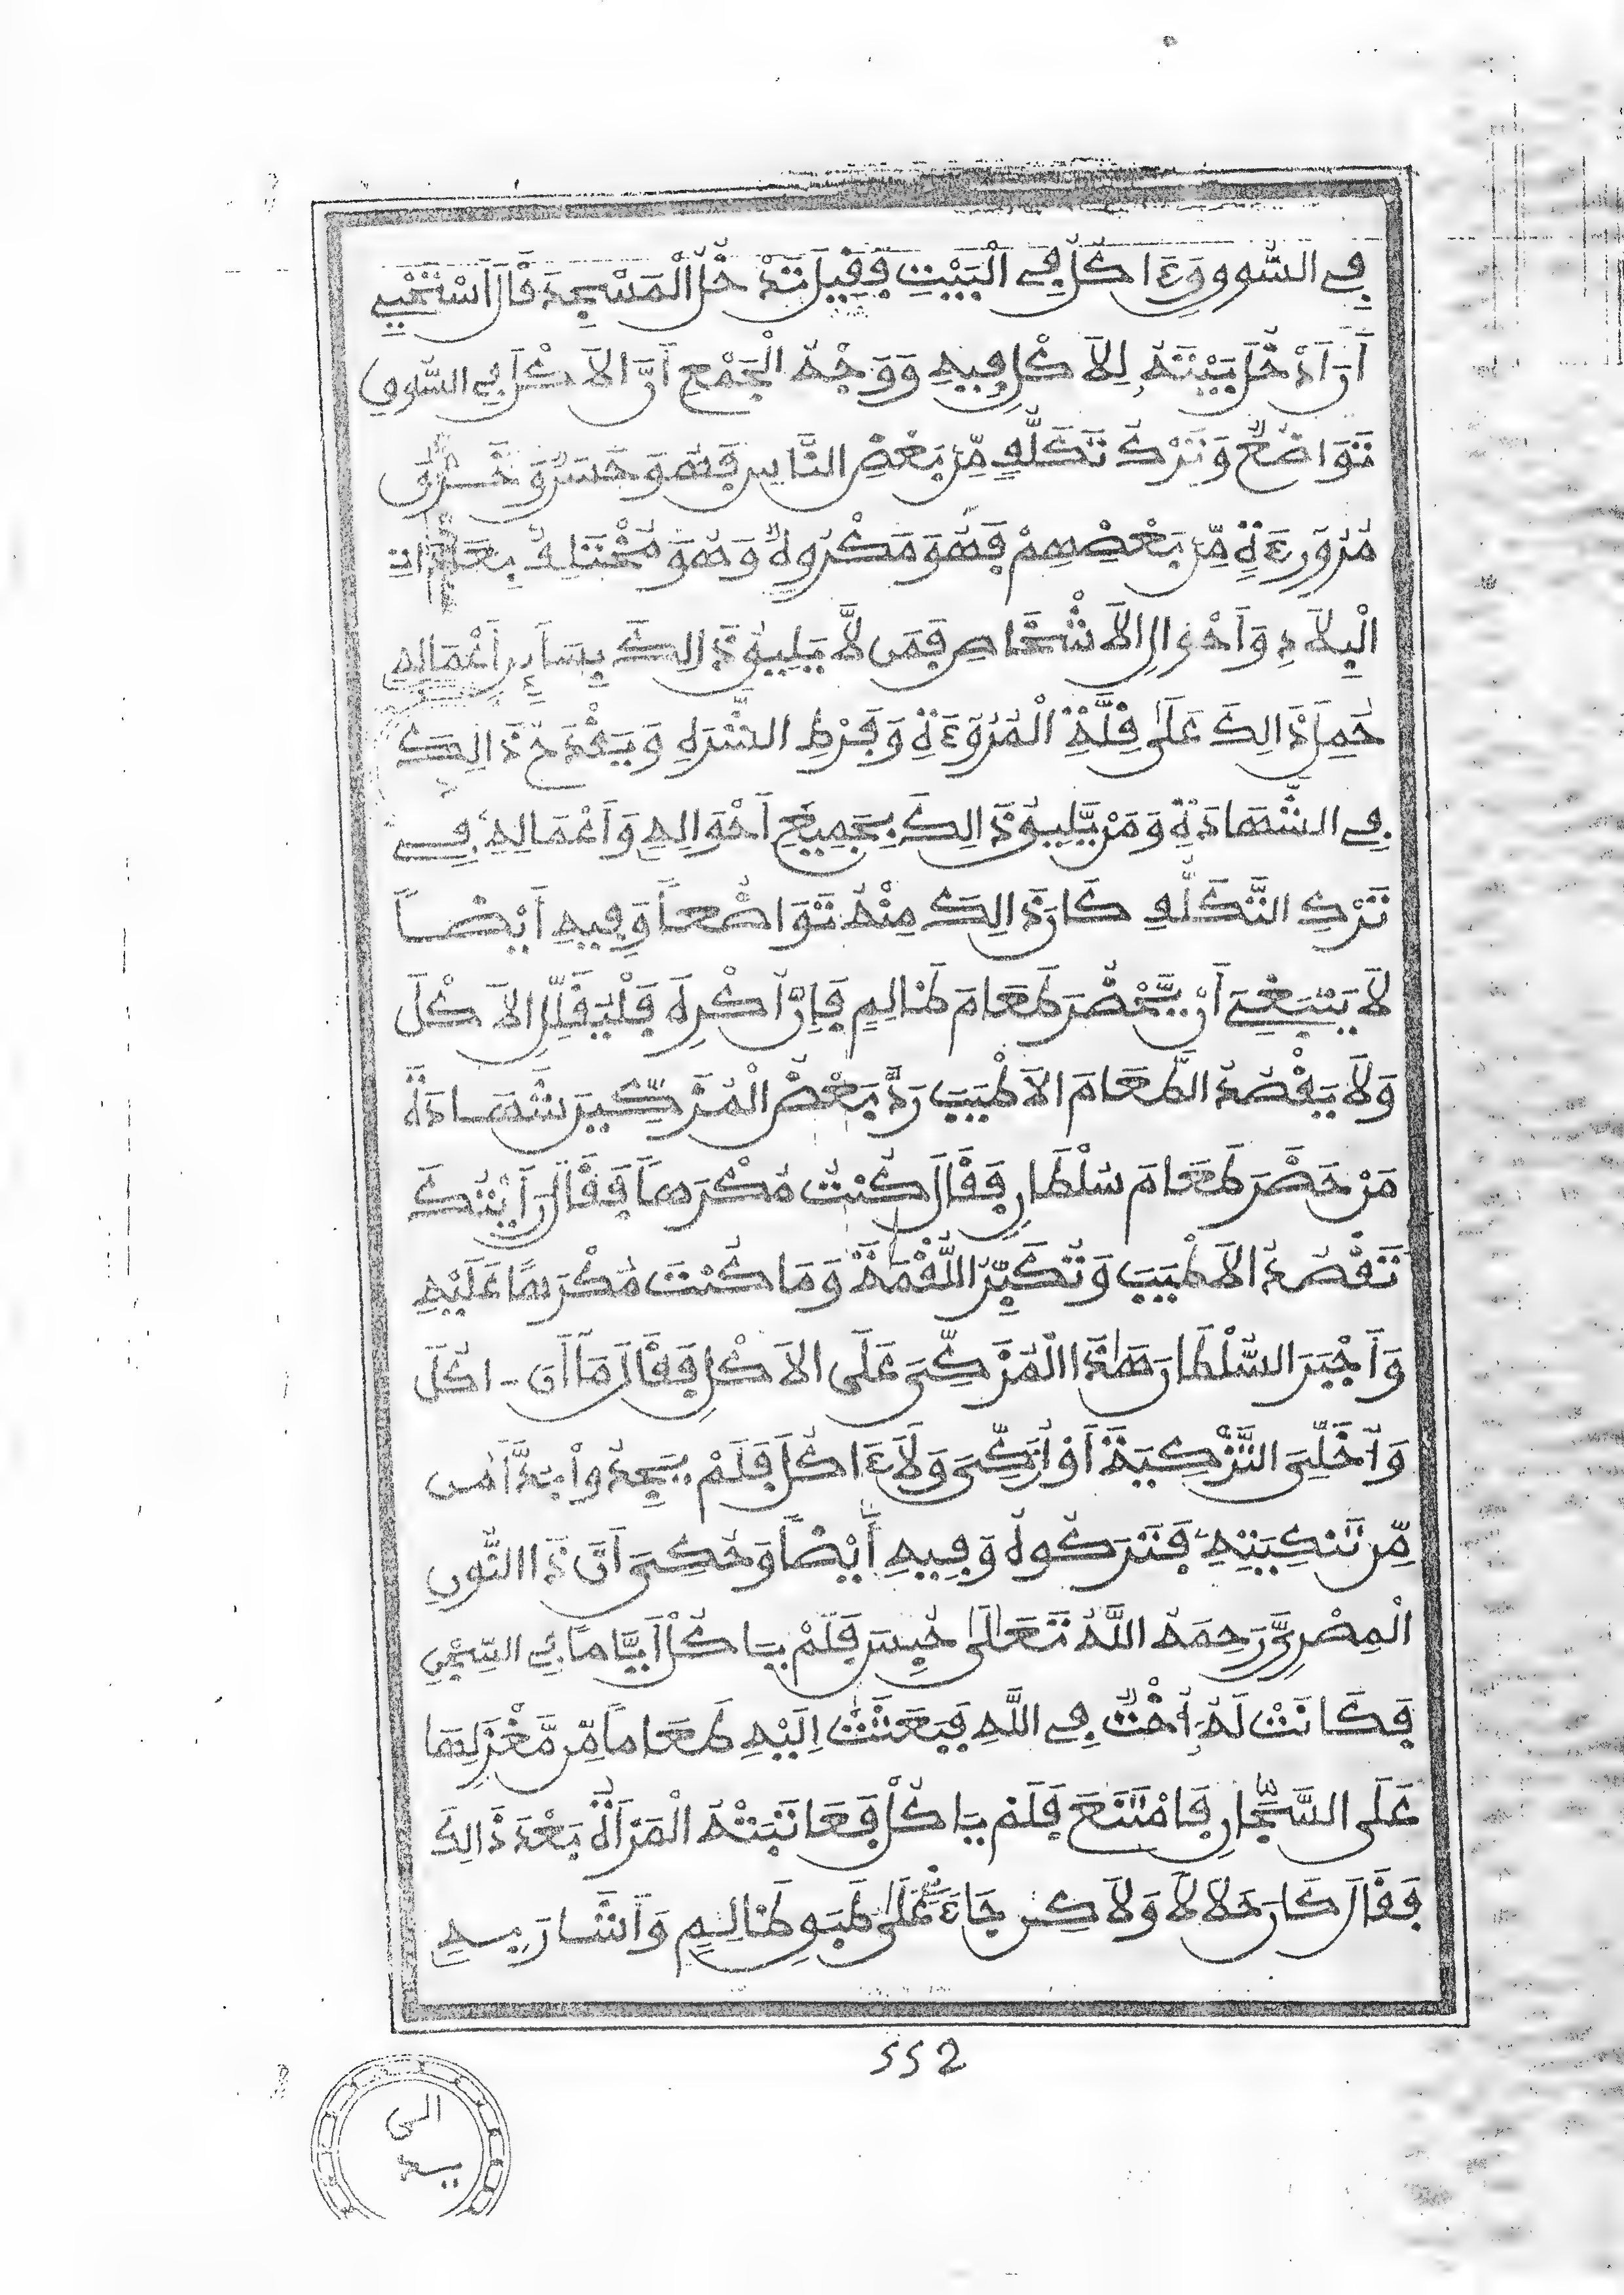 فِي السُّووِ وَءَاكُلُ فِي الْبَيْتِ فَقِيلَ تَدْخُلُ الْمَسْجِدَ قَالَ أَسْتَحْيِي
أَنَ اَدْخُلَ بَيْتَهُ لِلاَكْلِ فِيهِ وَوَجْهُ الْجَمْعِ أَنَّ الاَكْلَ فِي السُّوقِ
تَوَاضُعٌ وَتَرْكُ تَكَلُّفٍ مِّن بَعْضِ النَّاسِ فَهُوَ حَسَنٌ وَخَرْقُ
مُرُوءَةٍ مِّن بَعْضِهِمْ فَهُوَ مَكْرُوهٌ وَهُوَ مُخْتَلِفٌ بِعَادَاتِ
الْبِلاَدِ وَأَحْوَالِ الاَشْخَاصِ فَمَن لاَّ يَلِيقُ ذَالِكَ بِسَآئِرِ أَعْمَالِهِ
حُمِلَ ذَالِكَ عَلَى قِلَّةِ الْمُرُوءَةِ وَفَرْطِ الشَّرَهِ وَيَقْدَحُ ذَالِكَ
فِي الشَّهَادَةِ وَمَن يَّلِيقُ ذَالِكَ بِجَمِيعِ أَحْوَالِهِ وَأَعْمَالِهِ فِي
تَرْكِ التَّكَلُّفِ كَانَ ذَالِكَ مِنْهُ تَوَاضُعاً وَفِيهِ أَيْضاً
لاَ يَنْبَغِي أَن يَّحْضُرَ طَعَامَ ظَالِمٍ فَإِنُ اكْرِهَ فَلْيُقَلِّلِ الاَكْلَ
وَلاَ يَقْصُدُ الطَّعَامَ الاَطْيَبَ رَدَّ بَعْضُ الْمُزَكِّينَ شَهَادَةَ
مَنْ حَضَرَ طَعَامَ سُلْطَانٍ فَقَالَ كُنْتُ مُكْرَهاً فَقَالَ رَأَيْتُكَ
تَقْصُدُ الاَطْيَبَ وَتُكَبِّرُ اللُّقْمَةَ وَمَا كُنْتَ مُكْرَهًا عَلَيْهِ
وَأَجْبَرَ السُّلْطَانُ هَذَا الْمُزَكِّيَ عَلَى الاَكْلِ فَقَالَ إِمَّا أَنَ - اكُلَ
وَأُخَلِّيَ التَّزْكِيَةَ أَوُ ازَكِّيَ وَلاَءَاكُلَ فَلَمْ يَجِدُواْ بُدًّا
مِّن تَزْكِيَتِهِ فَتَرَكُوهُ وَفِيهِ أَيْضاً وَحُكِيَ أَنَّ ذَا النُّونِ
الْمِصْرِيَّ رَحِمَهُ اللَّهُ تَعَالَى حُبِسَ فَلَمْ يَاكُلَ أَيَّاماً فِي السِّجْنِ
فَكَانَتْ لَهُ أُخْتٌ فِي اللَّهِ فَبَعَثَتْ إِلَيْهِ طَعَاماً مِّن مَّغْزَلِهَا
عَلَى السَّجَّانِ فَامْتَنَعَ فَلَمْ يَاكُلْ فَعَاتَبَتْهُ الْمَرْأَةُ بَعْدَ ذَالِكَ
فَقَالَ كَانَ حَلاَلاً وَلاَكِن جَاءَ عَلَى طَبَقِ ظَالِمٍ وَأَشَارَ بِهِ
552
الى
يد